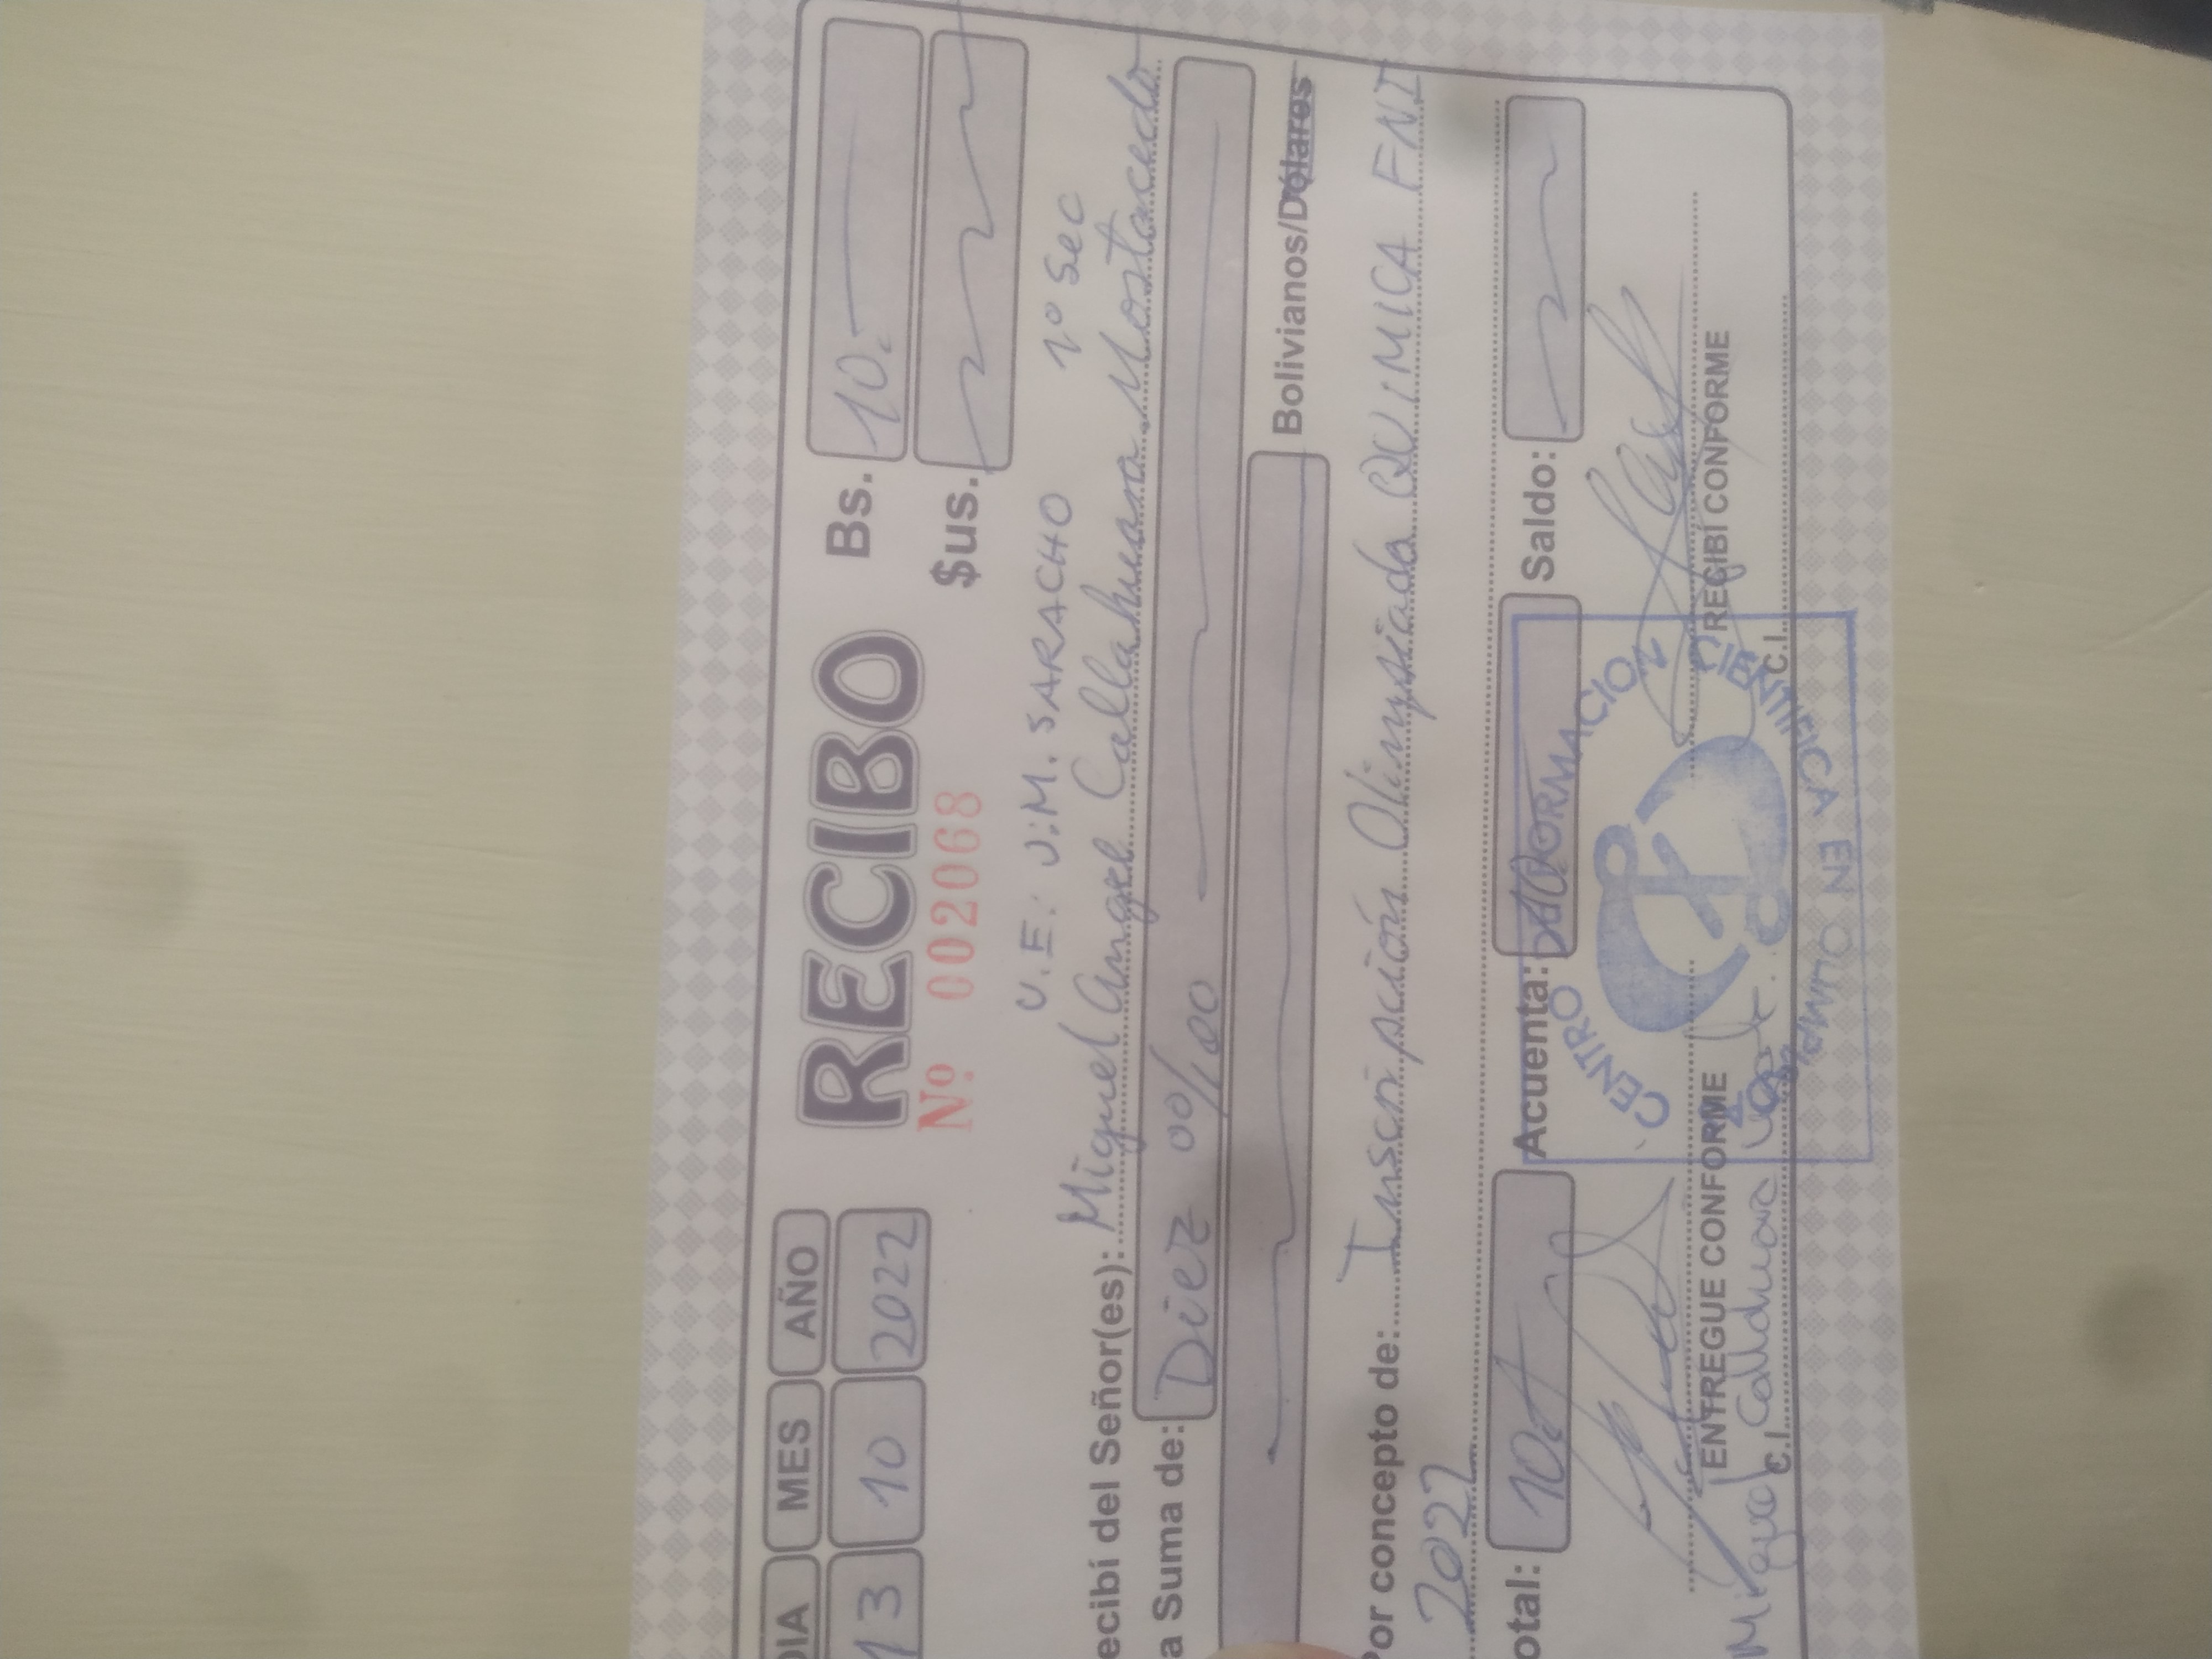 DIA MES AÑO
13 10 2022
RECIBO
Nº 002068
Bs. 10.
$us.
U.E. J.M. SARACHO 1º Sec
ecibí del Señor(es): Miguel Angel Callahuara Mostacedo
a Suma de: Diez 00/100
Bolivianos/Dólares
Por concepto de: Inscripción Olimpiada QUIMICA FNI
2022
otal: 10. Acuenta: 10. Saldo:
ENTREGUE CONFORME RECIBÍ CONFORME
Miguel Callahuara
C.I. C.I.
CENTRO DE FORMACION CIENTIFICA EN OLIMPIADAS